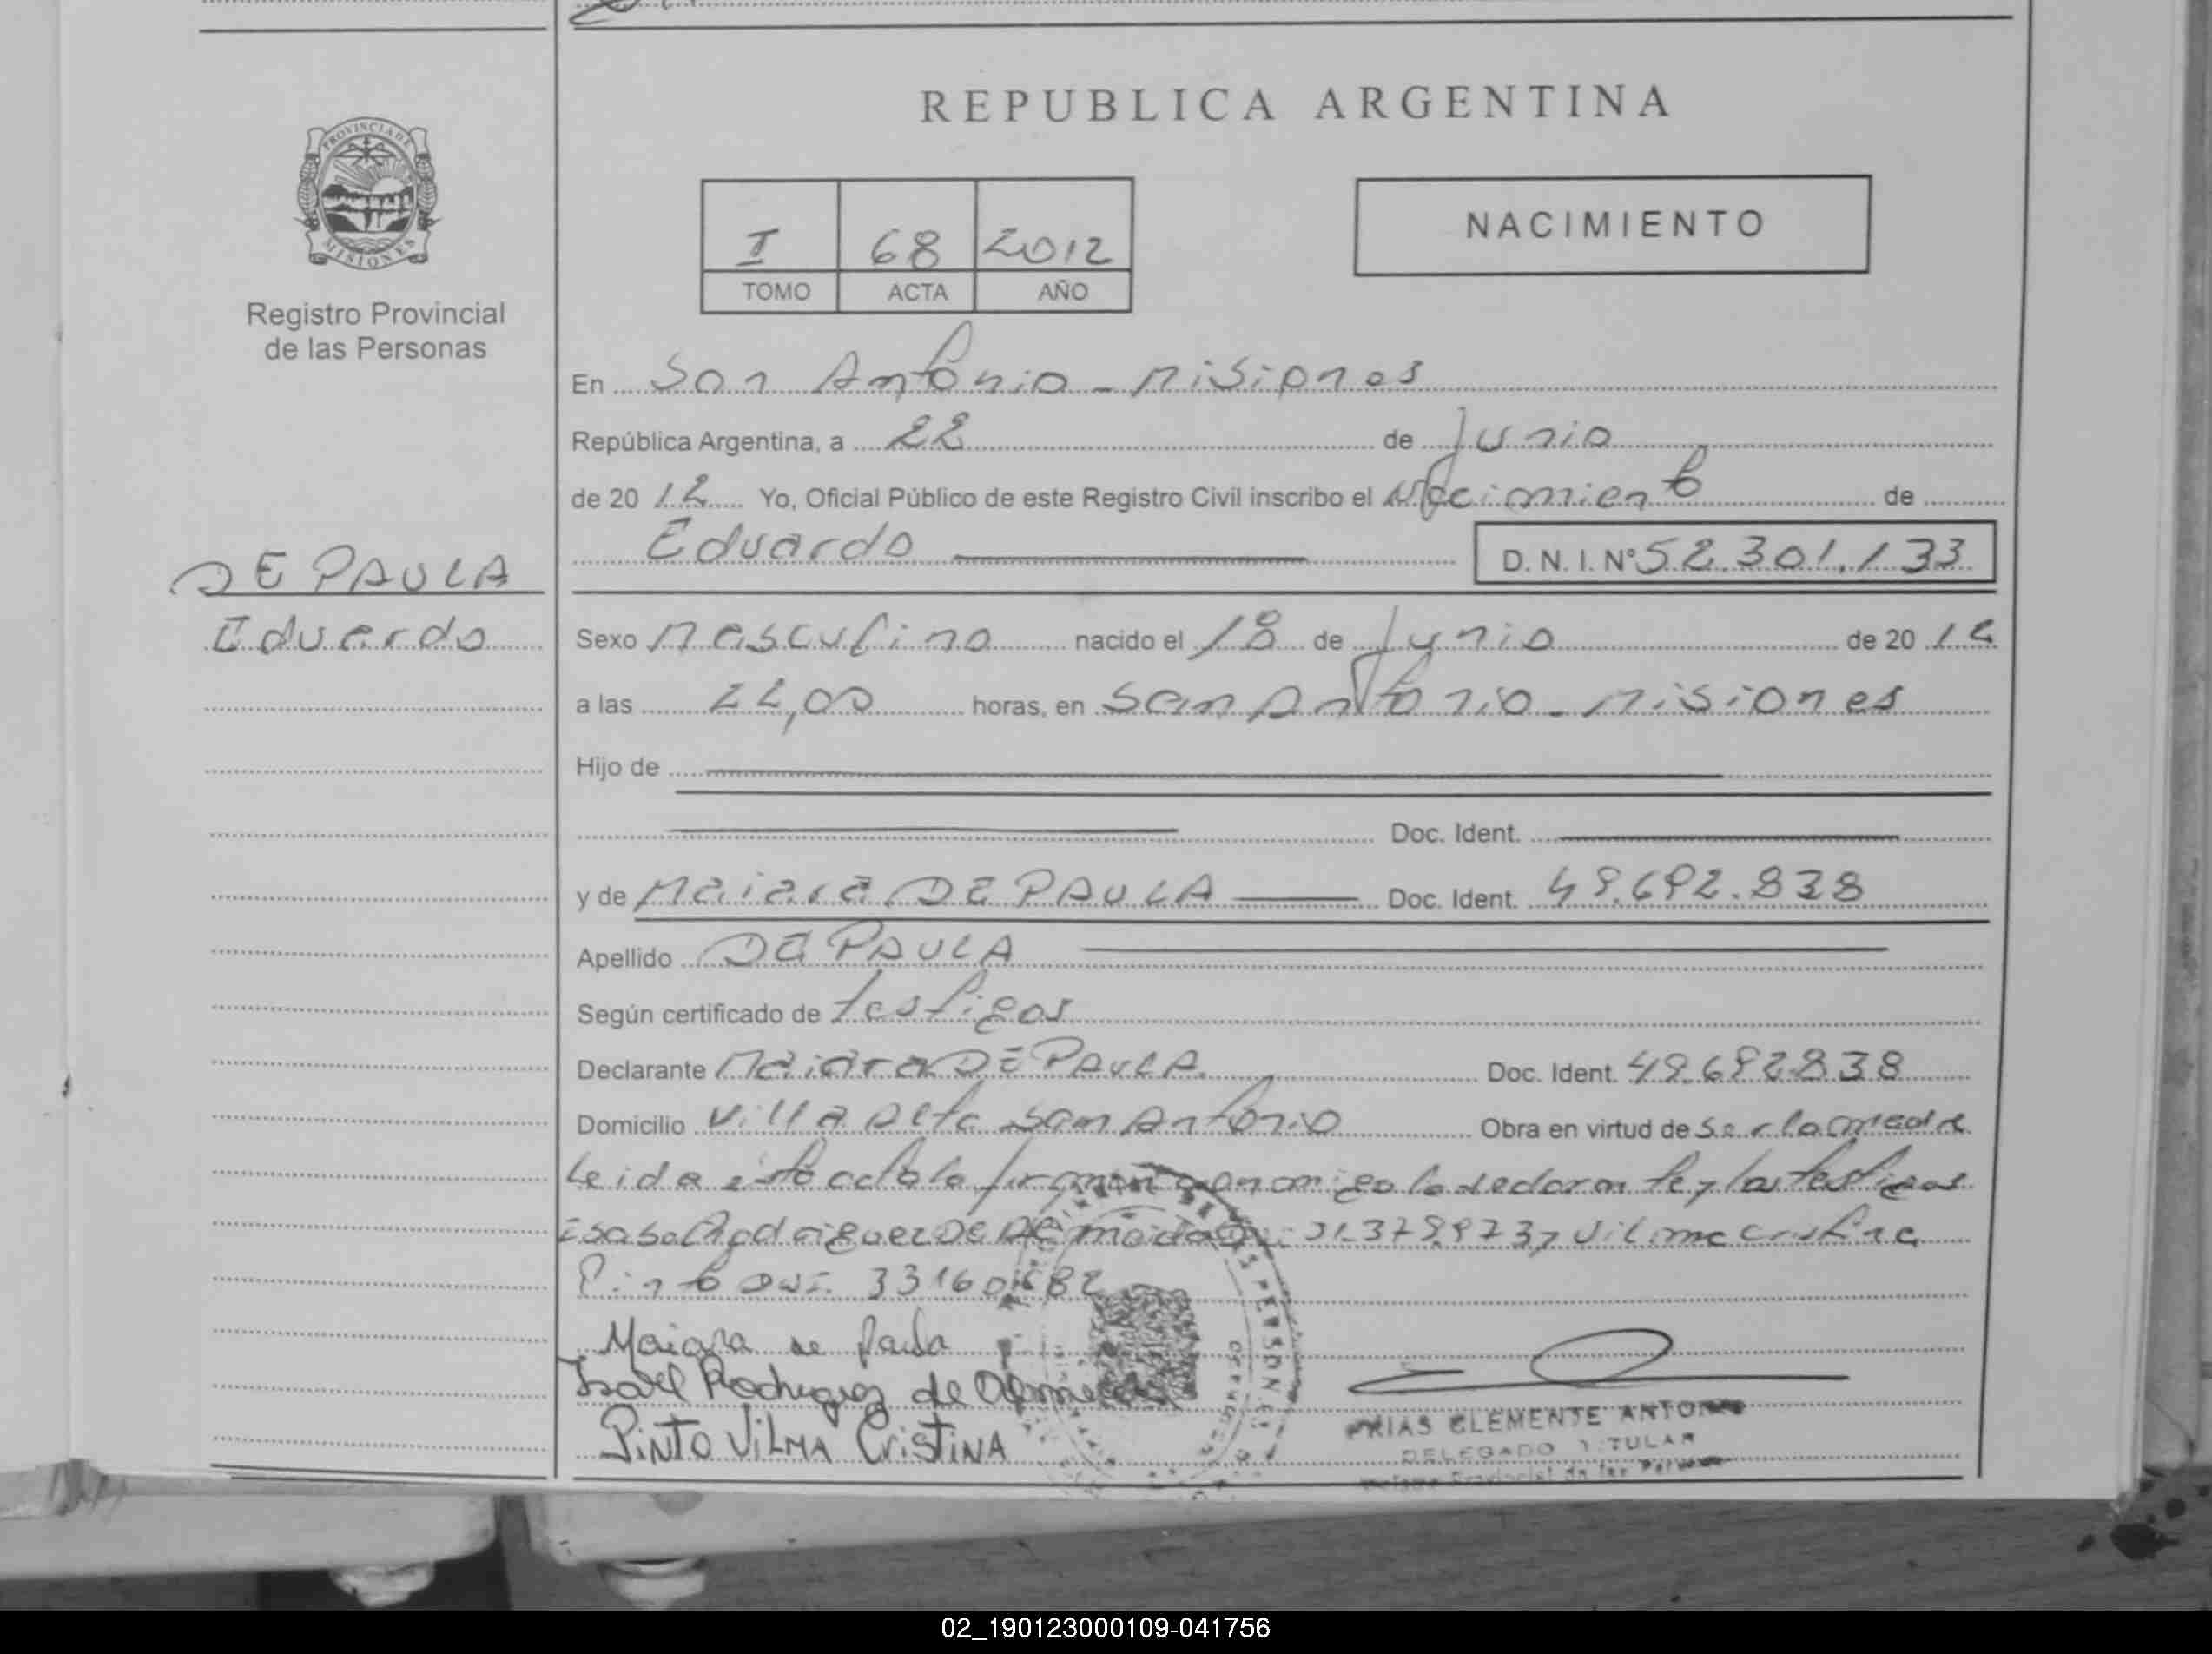 REPUBLICA ARGENTINA
PROVINCIA DE
MISIONES
Registro Provincial
de las Personas
I 68 2012
TOMO ACTA AÑO
NACIMIENTO
En San Antonio - Misiones
República Argentina, a 22 de Junio
de 20 12 Yo, Oficial Público de este Registro Civil inscribo el Nacimiento de
Eduardo D. N. I. Nº 52.301.133
DE PAULA
Eduardo
Sexo Masculino nacido el 18 de Junio de 20 12
a las 22,00 horas, en San Antonio - Misiones
Hijo de
Doc. Ident.
y de Maiara DE PAULA Doc. Ident. 49.692.838
Apellido DE PAULA
Según certificado de testigos
Declarante Maiara DE PAULA Doc. Ident. 49.692.838
Domicilio Villa Alta San Antonio Obra en virtud de ser la madre
Leida esta acta la firman conmigo la declarante y los testigos
Rodriguez De y Vilma Cristina
Pinto DNI. 33160682
Maiara de Paula
Isabel Rodriguez de
PINTO VILMA CRISTINA
CLEMENTE
DELEGADO TITULAR
02_190123000109-041756